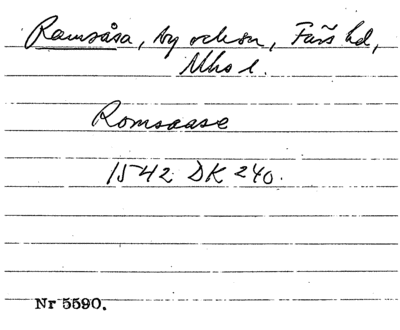 Ramsåsa, by och sn, Färs hd,
Mhs l.
Romsaase
1542 DK 240.
Nr 5590.